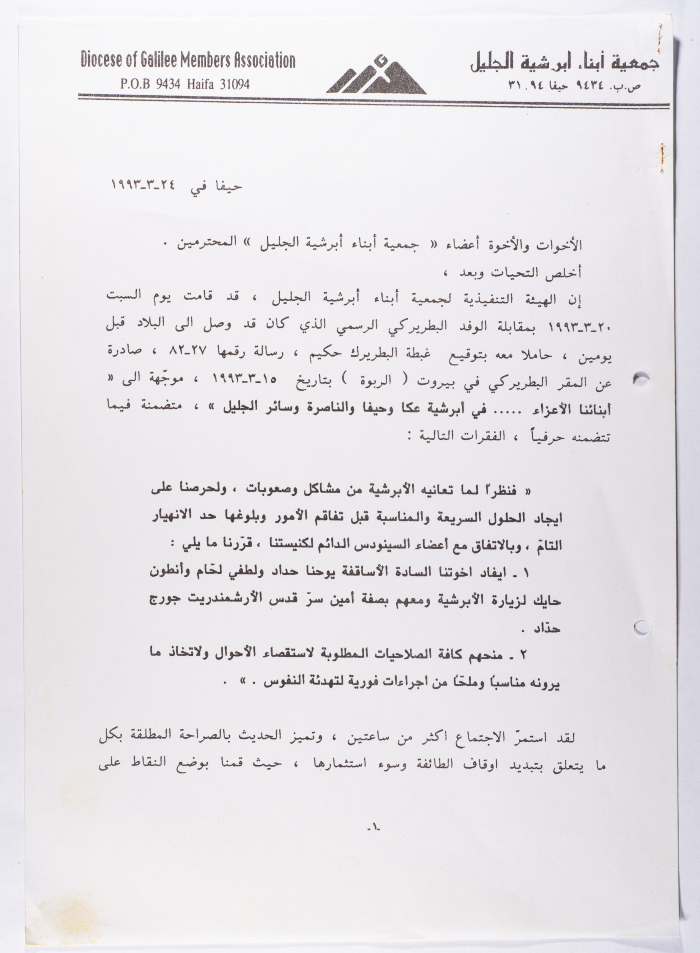 Diocese of Galilee Members Association
P.O.B 9434 Haifa 31094
جمعية أبناء أبرشية الجليل
ص.ب. ٩٤٣٤ حيفا ٣١٠٩٤
حيفا في ٢٤-٣-١٩٩٣
الأخوات والأخوة أعضاء « جمعية أبناء أبرشية الجليل » المحترمين .
أخلص التحيات وبعد ،
إن الهيئة التنفيذية لجمعية أبناء أبرشية الجليل ، قد قامت يوم السبت
٢٠-٣-١٩٩٣ بمقابلة الوفد البطريركي الرسمي الذي كان قد وصل الى البلاد قبل
يومين ، حاملا معه بتوقيع غبطة البطريرك حكيم ، رسالة رقمها ٢٧-٨٢ ، صادرة
عن المقر البطريركي في بيروت ( الربوة ) بتاريخ ١٥-٣-١٩٩٣ ، موجّهة الى «
أبنائنا الأعزاء ..... في أبرشية عكا وحيفا والناصرة وسائر الجليل » ، متضمنة فيما
تتضمنه حرفياً ، الفقرات التالية :
« فنظرًا لما تعانيه الأبرشية من مشاكل وصعوبات ، ولحرصنا على
ايجاد الحلول السريعة والمناسبة قبل تفاقم الأمور وبلوغها حد الانهيار
التامّ ، وبالاتفاق مع أعضاء السينودس الدائم لكنيستنا ، قرّرنا ما يلي :
١ ـ ايفاد اخوتنا السادة الأساقفة يوحنا حداد ولطفي لحّام وأنطون
حايك لزيارة الأبرشية ومعهم بصفة أمين سرّ قدس الأرشمندريت جورج
حدّاد .
٢ ـ منحهم كافة الصلاحيات المطلوبة لاستقصاء الأحوال ولاتخاذ ما
يرونه مناسبًا وملحًا من اجراءات فورية لتهدئة النفوس . » .
لقد استمرّ الاجتماع اكثر من ساعتين ، وتميز الحديث بالصراحة المطلقة بكل
ما يتعلق بتبديد اوقاف الطائفة وسوء استثمارها ، حيث قمنا بوضع النقاط على
-١-